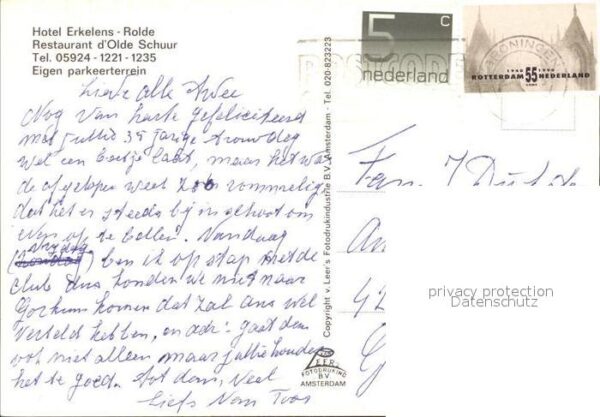 Hotel Erkelens - Rolde
Restaurant d'Olde Schuur
Tel. 05924 - 1221 - 1235
Eigen parkeerterrein
Lieve alle twee
Nog van harte gefeliciteerd
met jullie 35 jarige trouwdag
wel een beetje laat, maar het was
de afgelopen week zo rommelig
dat het er steeds bij in geschoot om
even op te bellen. Vandaag
(vrijdag) ben ik op stap met de
club dus konden we niet naar
Gorkum komen dat zal ans wel
verteld hebben, en adr: gaat dan
ook niet alleen maar jullie houden
het te goed. Tot dan, veel
liefs van Toos
Copyright v. Leer's Fotodrukindustrie B.V. Amsterdam - Tel. 020-823223
5 c
nederland
POSTCODE
GRONINGEN
1940 1990
ROTTERDAM 55 NEDERLAND
CENT
Fam. J Du
An
42
G
privacy protection
Datenschutz
LEER'S
FOTODRUKIND
B.V.
AMSTERDAM